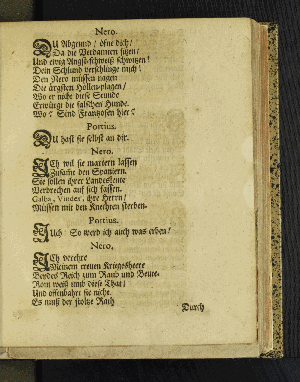 Nero.
DU Abgrund / öfne dich /
Da die Verdamten sitzen /
Und ewig Angst-schweiß schwitzen!
Dein Schlund verschlinge mich!
Den Nero müssen nagen
Die ärgsten Höllen-plagen /
Wo er nicht diese Stunde
Erwürgt die falschen Hunde.
Wo? Sind Frantzosen hier?
Portius.
DU hast sie selbst an dir.
Nero.
ICh wil sie martern lassen
Zusamt den Spaniern.
Sie sollen ihrer Landesleute
Verbrechen auf sich fassen.
Galba, Vindex, ihre Herrn /
Müssen mit den Knechten sterben.
Portius.
Auch: So werd ich auch was erben!
Nero.
ICh verehre
Meinem treuen Kriegesheere
Beydes Reich zum Raub und Beute.
Rom weiß umb diese That /
Und offenbahrt sie nicht.
Es muß der stoltze Rath
Durch